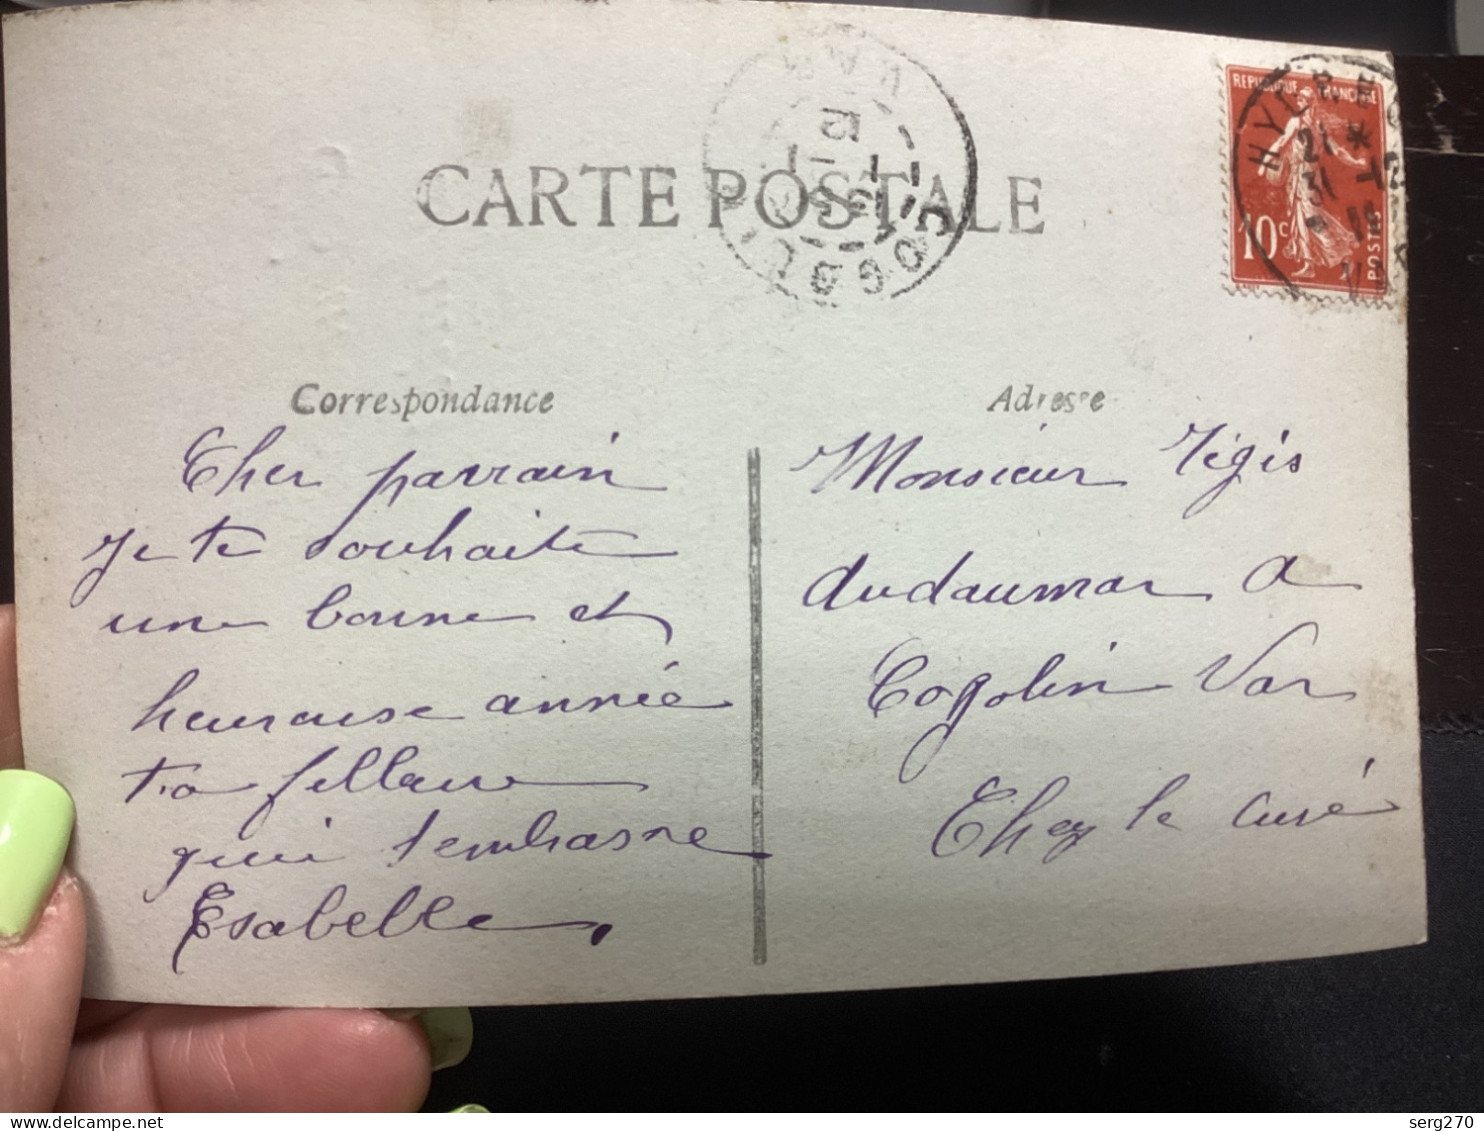 CARTE POSTALE
REPUBLIQUE FRANCAISE
HYERES
21 *
31
VAR
10c
POSTES
COGOLIN
VAR
12
Correspondance
Cher parrain
Je te souhaite
une bonne et
heureuse année
ta filleule
qui t'embrasse
Esabelle,
Adresse
Monsieur Régis
Audaumar a
Cogolin Var
Chez le curé
delcampe.net
serg270